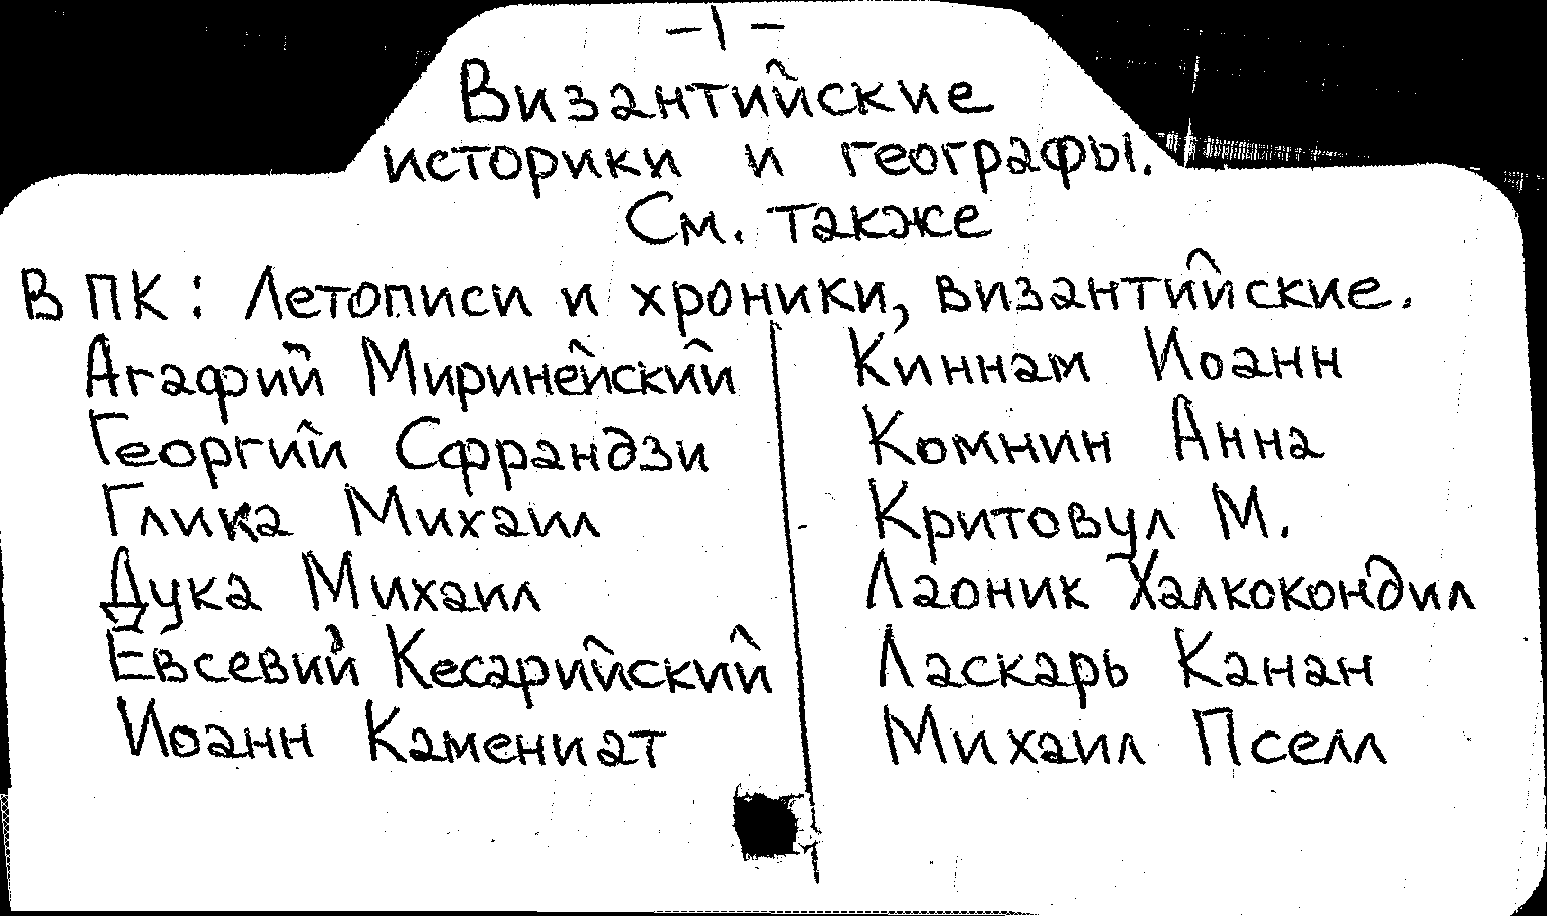 -1-
Византийские
историки и географы.
См. также
В ПК: Летописи и хроники, византийские.
Агафий Миринейский
Георгий Сфрандзи
Глика Михаил
Дука Михаил
Евсевий Кесарийский
Иоанн Камениат
Киннам Иоанн
Комнин Анна
Критовул М.
Лаоник Халкокондил
Ласкарь Канан
Михаил Пселл